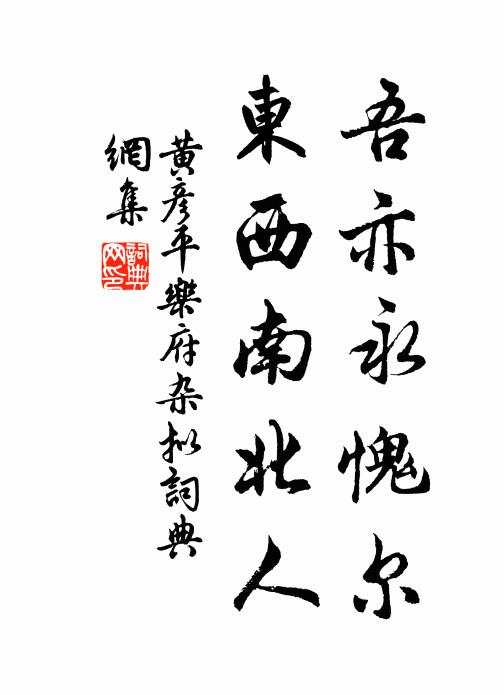 吾亦永愧尔
東西南北人
黄彦平樂府杂拟詞典
網集
詞典
网印